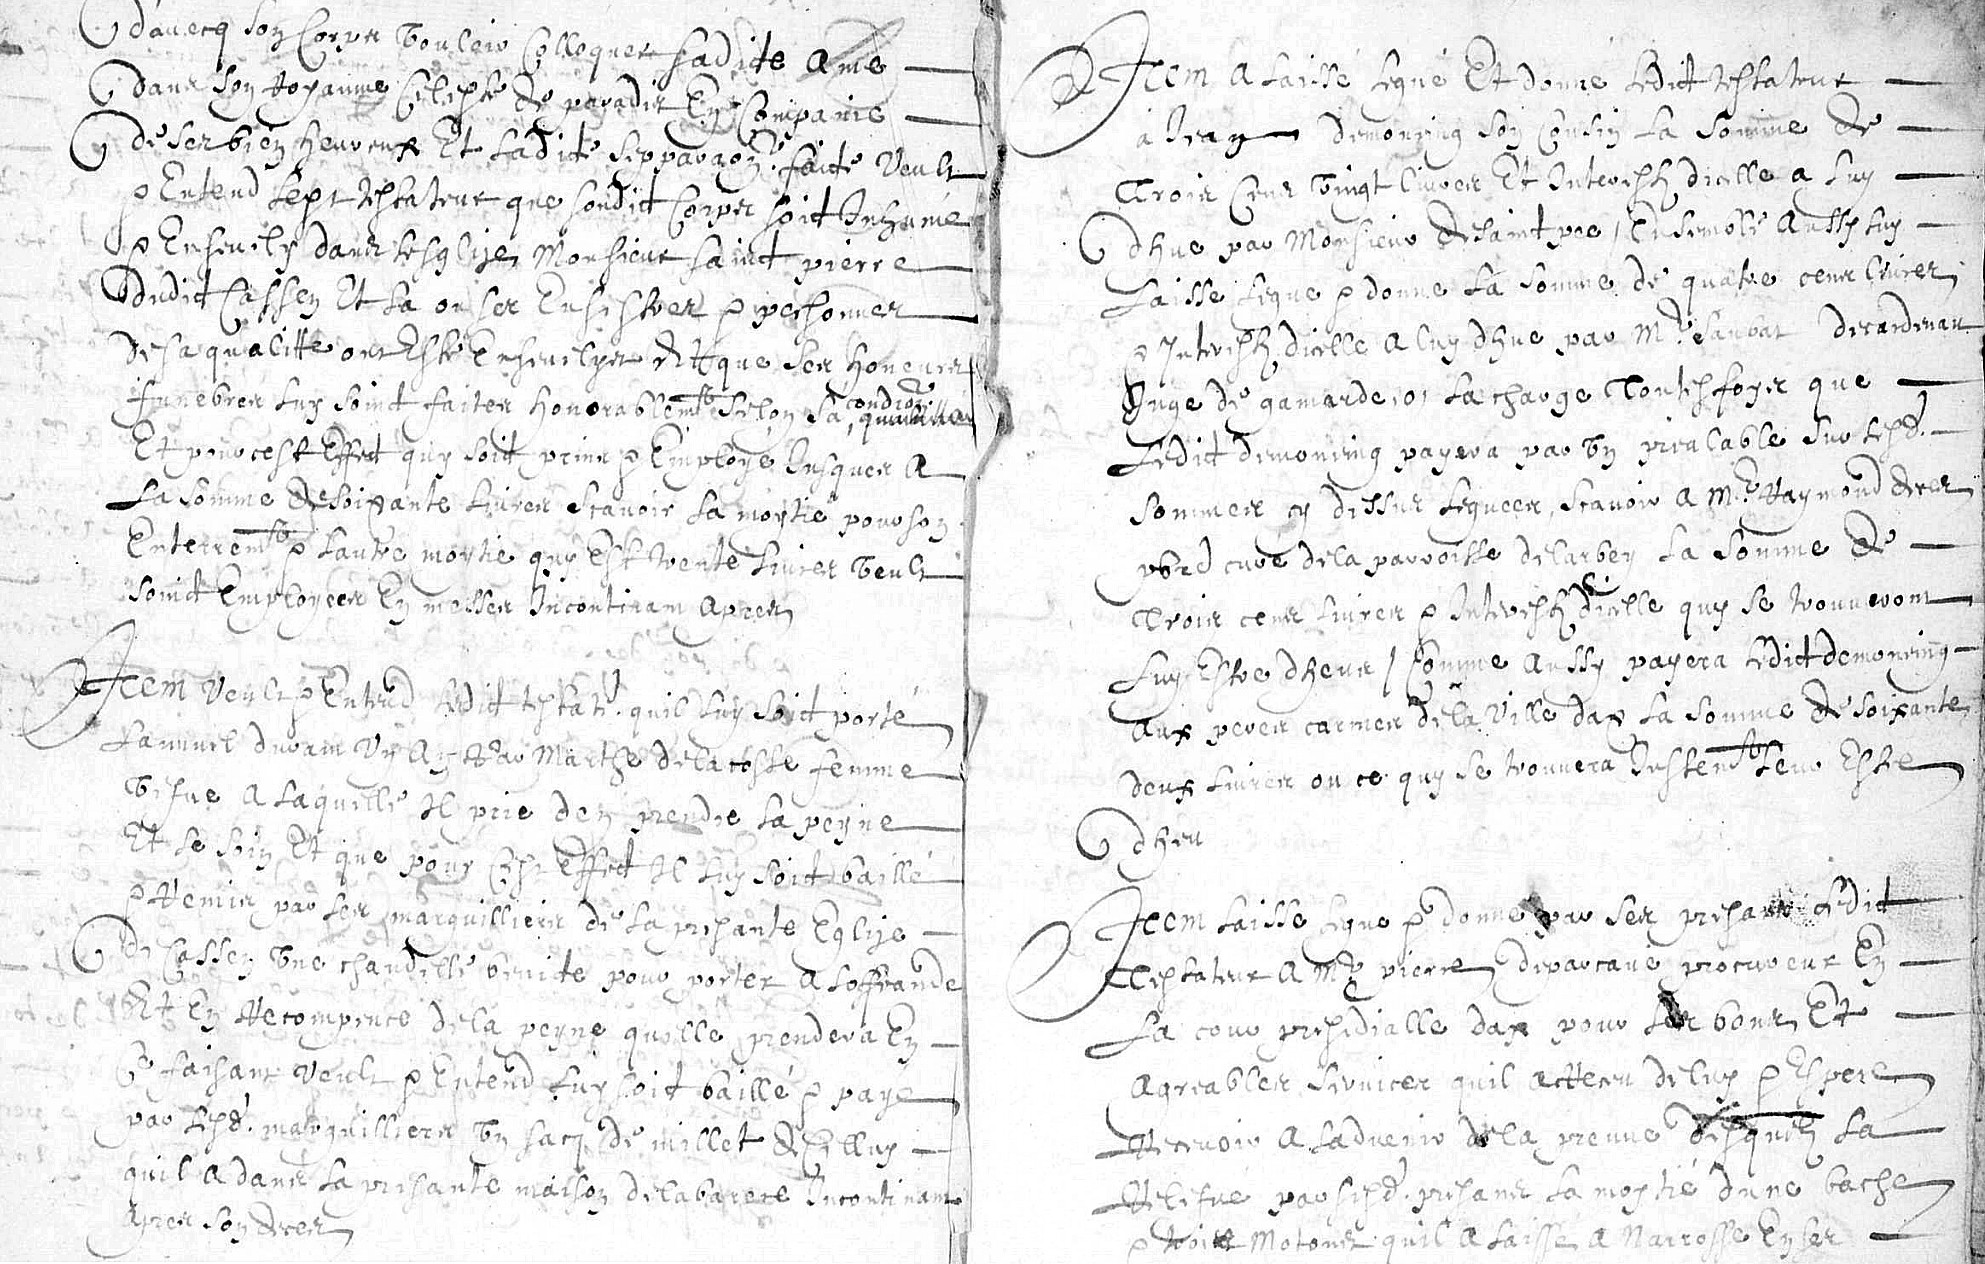 davecq son Corps Vouloir Colloquer sadicte Ame
dans son Royaume Celeste de paradis En Companie
de ses bien heureux Et ladicte sepparaon faicte Veult
& Entend led testateur que sondict Corps soict Inhumé
& Ensevely dans lesglise Monsieur sainct pierre
dudict Cassen Et la ou ses Ensestres & personnes
de sa qualitte ont Esté Ensevelyes Et que ses honeurs
funebres luy soinct faites honorablemt selon sa condion
Et pour cest Effect quy soit prins & Employé Jusques A
la somme de soixante livres scavoir la moytié pour son
Enterremt & lautre moytié quy Est trente livres Veult
soinct Employees En messes Incontinam Apres
Item Veult & Entend ledict testatr. quil luy soict porté
lannuel durant Un An par Marthe delacoste femme
Vefve A laquelle Il prie den prendre la peyne
Et le soin Et que pour Cest Effect Il luy soict baillé
& Remis par les marguilliers de la presante Eglise
de Cassen Une chandelle benicte pour porter A loffrande
Et En Recompence de la peyne quelle prendera En
Ce faisant Veult & Entend luy soict baillé & paye
par lesd. marguilliers Un sacq de millet de Celluy
quil A dans la presante maison delabarere Incontinam
Apres son deces
Item A laissé legué Et donné ledict testateur
a Jean demoncing son Cousin la somme de
Trois Cens Vingt livres Et Interestz dicelle a luy
dhue par Monsieur desainct pee / Ensemble Aussy luy
laisse legue & donne la somme de quatre cens livres
& Interestz dicelle A luy dhue par Mr. saubat decardenau
Juge de gamarde / la charge Toutesfoys que
ledict demoncing payera par Un prealable sur lesd.
sommes cy dessus leguees, scavoir A Mr. Raymond
pbre curé de la parroisse delarbey la somme de
Trois cens livres & Interestz dicelle quy se trouveront
luy Estre dheus / Comme Aussy payera ledict demoncing
Aux peres carmes de la Ville dax la somme de soixante
deux livres ou ce quy se trouvera Justemt leur Estre
dheu
Item laisse legue & donne par ses presans ledict
Testateur A Mr pierre deparcave procureur En
la cour presidialle dax pour les bons Et
Agreables services quil A Receu de luy & Espere
Recevoir A ladvenir de la preuve desquelz la
Releve par sesd. presans la moytié dune bache
& trois Motons quil A laissé A Narrosse En ses